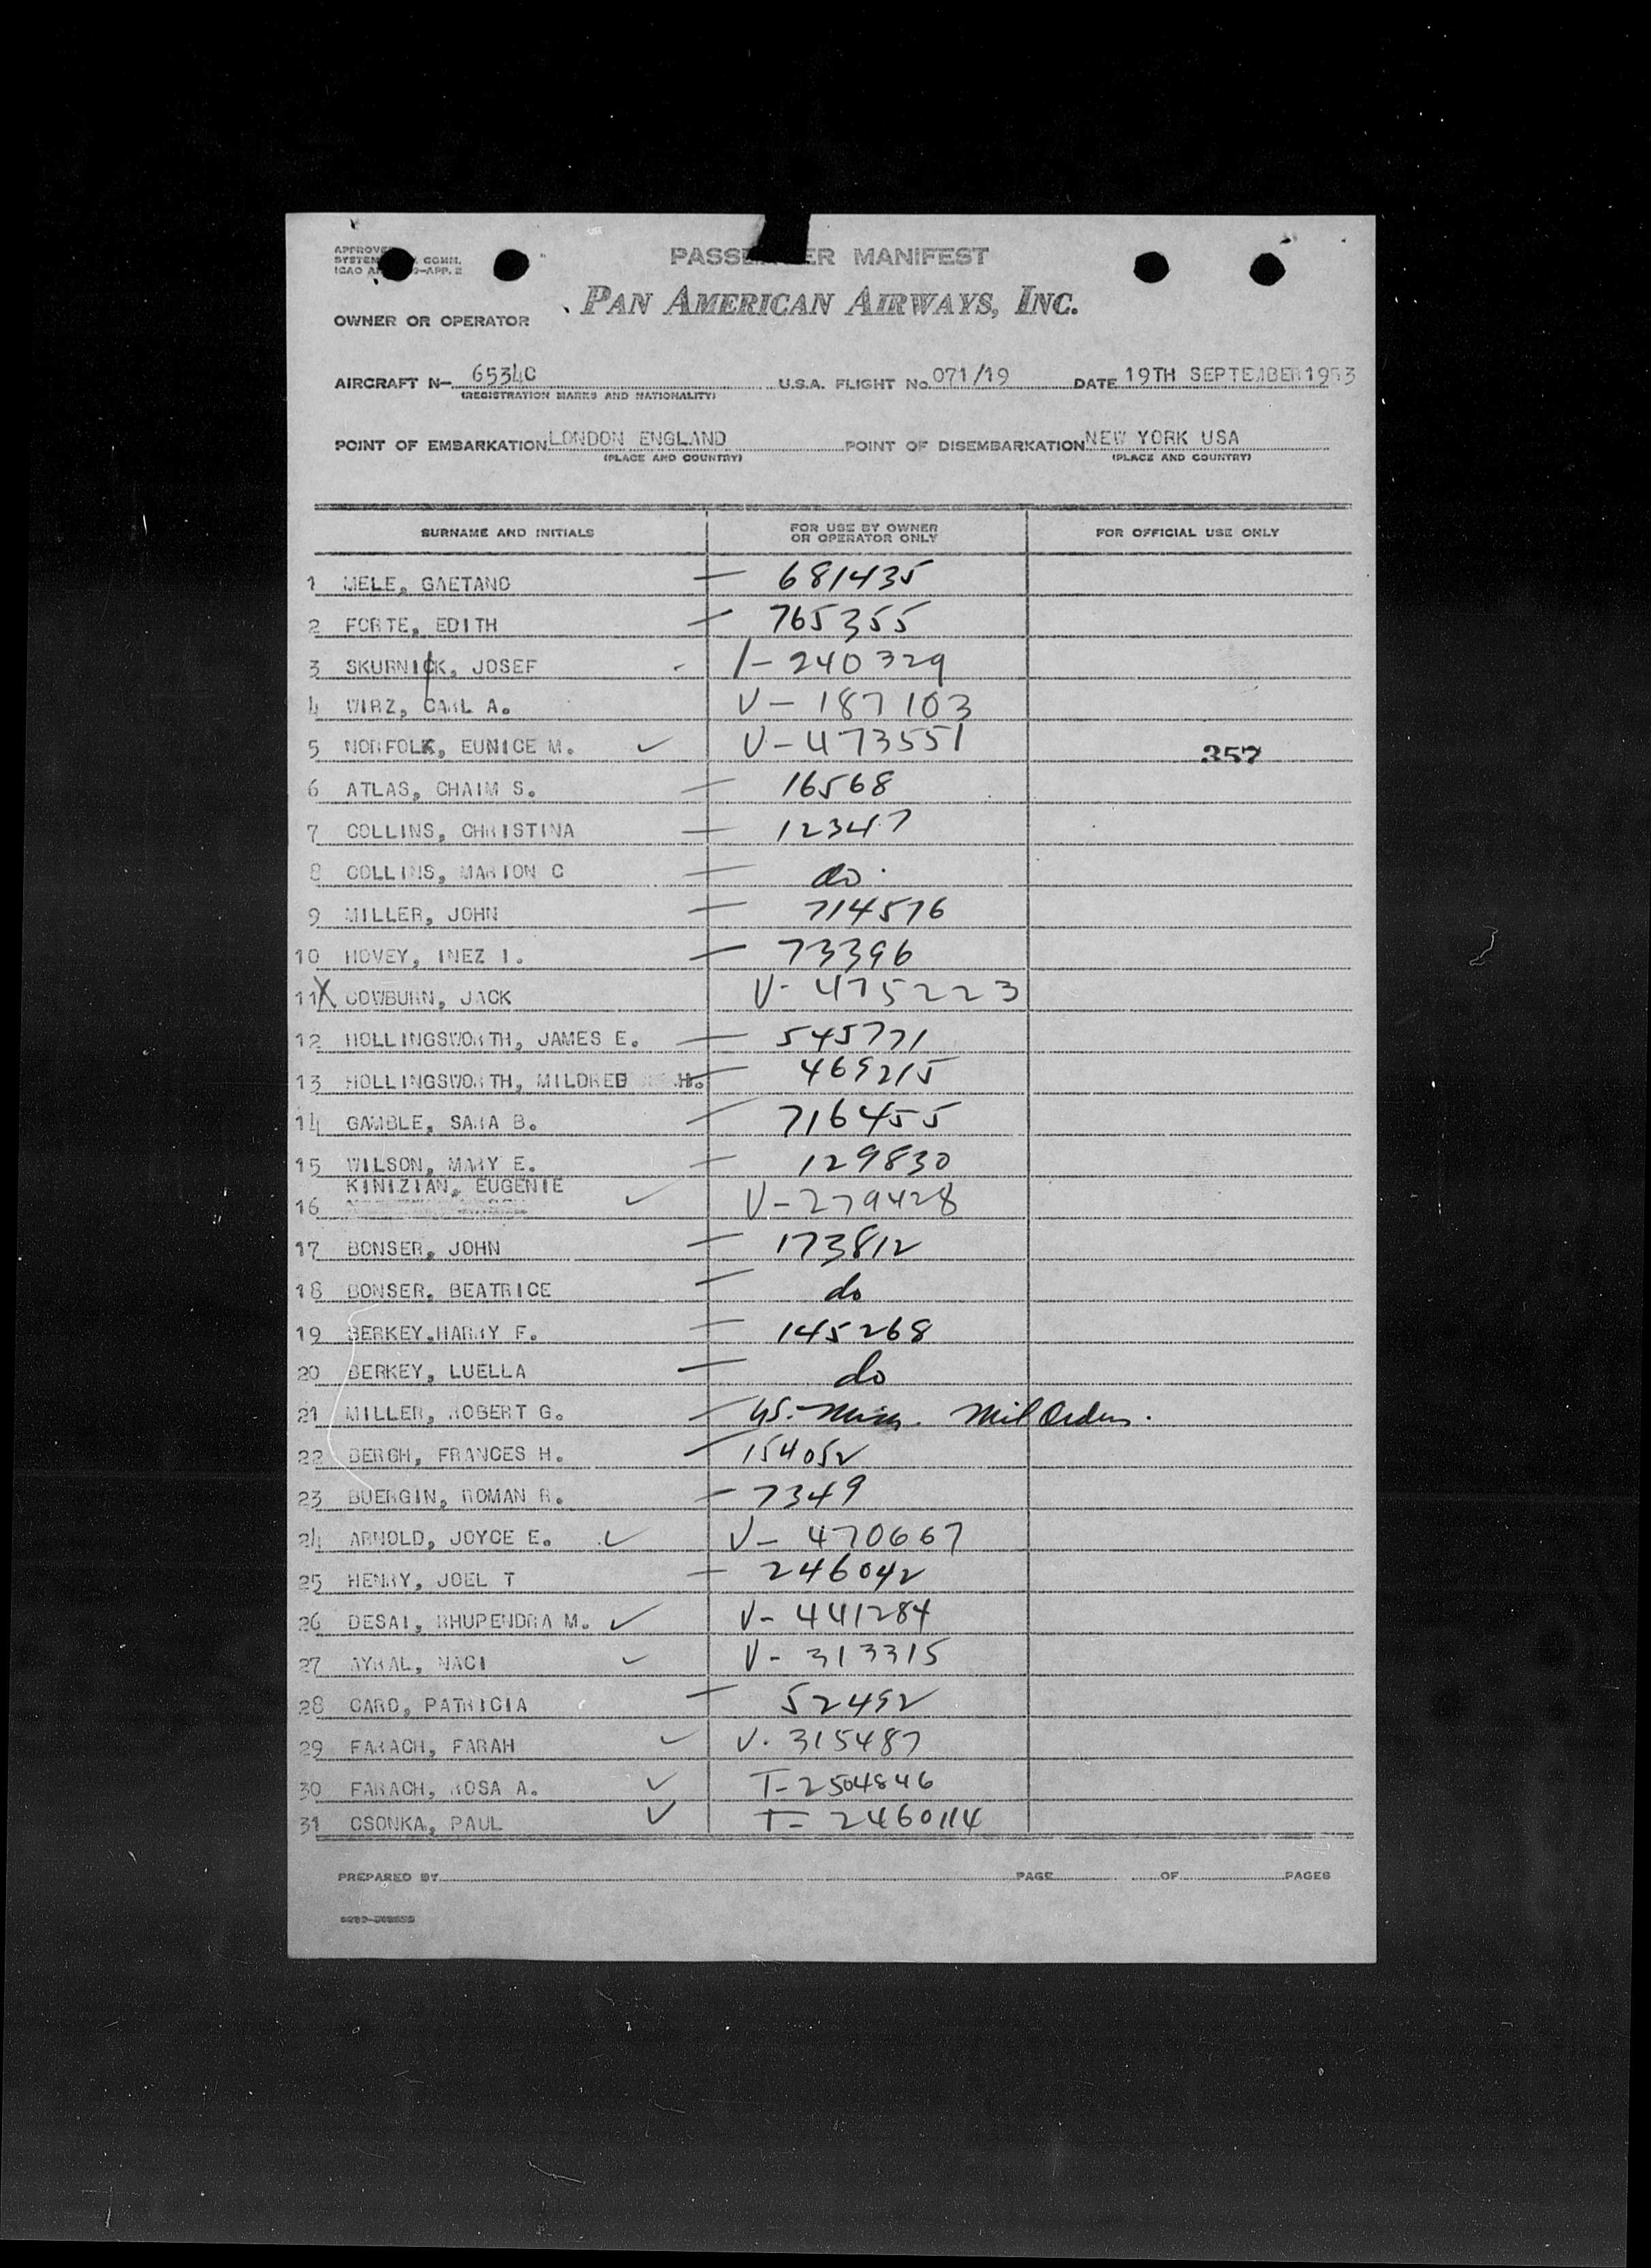 PASSENGER MANIFEST
PAN AMERICAN AIRWAYS, INC.
OWNER OR OPERATOR
AIRCRAFT N- 6534C U.S.A. FLIGHT No. 071/19 DATE 19TH SEPTEMBER 1953
(REGISTRATION MARKS AND NATIONALITY)
POINT OF EMBARKATION LONDON ENGLAND POINT OF DISEMBARKATION NEW YORK USA
(PLACE AND COUNTRY) (PLACE AND COUNTRY)
SURNAME AND INITIALS FOR USE BY OWNER OR OPERATOR ONLY FOR OFFICIAL USE ONLY
1 MELE, GAETANO — 681435
2 FORTE, EDITH — 765355
3 SKURNICK, JOSEF - 240329
4 WIRZ, CARL A. V-187103
5 NORFOLK, EUNICE M. ✓ V-473551
357
6 ATLAS, CHAIM S. — 16568
7 COLLINS, CHRISTINA — 12347
8 COLLINS, MARION C — do
9 MILLER, JOHN — 714576
10 HOVEY, INEZ I. — 73396
11 X COWBURN, JACK V-475223
12 HOLLINGSWORTH, JAMES E. — 545771
13 HOLLINGSWORTH, MILDRED H. — 469215
14 GAMBLE, SARA B. — 716455
15 WILSON, MARY E. — 129830
16 KINIZIAN, EUGENIE ✓ V-279428
17 BONSER, JOHN — 173812
18 BONSER, BEATRICE — do
19 BERKEY, HARRY F. — 145268
20 BERKEY, LUELLA — do
21 MILLER, ROBERT G. — US. Mil Orders.
22 BERGH, FRANCES H. — 154052
23 BUERGIN, ROMAN R. — 7349
24 ARNOLD, JOYCE E. ✓ V-470667
25 HENRY, JOEL T — 246042
26 DESAI, BHUPENDRA M. ✓ V-441284
27 AYRAL, NACI ✓ V-313315
28 CARO, PATRICIA — 52492
29 FARACH, FARAH ✓ V-315487
30 FARACH, ROSA A. ✓ T-2504846
31 CSONKA, PAUL ✓ T-2460114
PREPARED BY PAGE OF PAGES